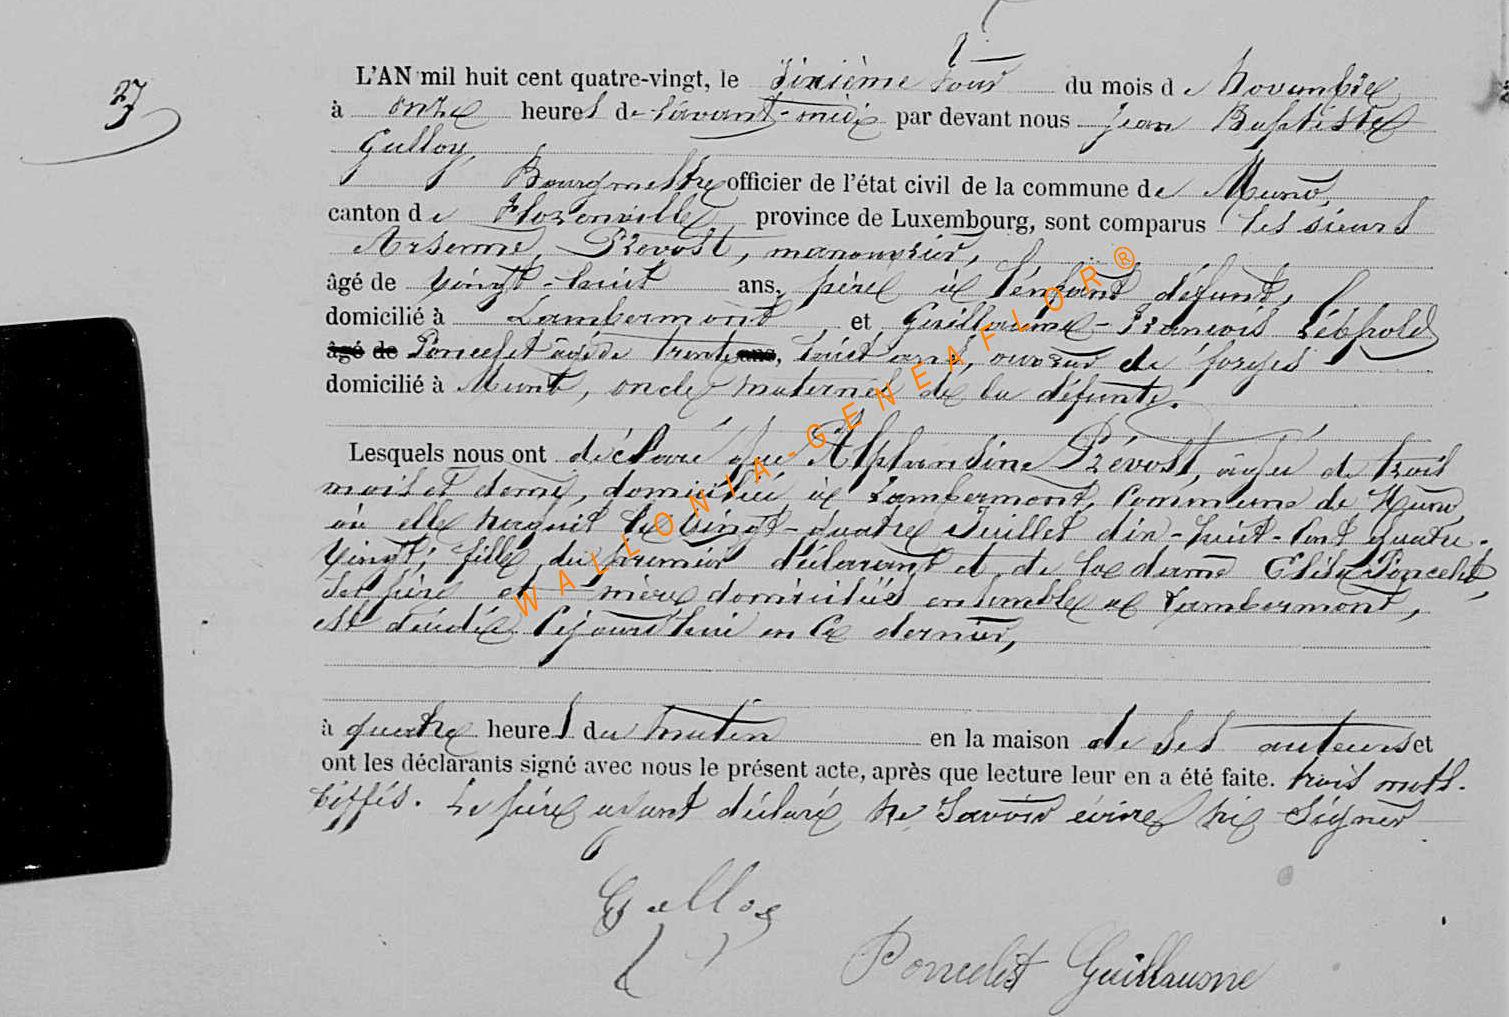 27
L'AN mil huit cent quatre-vingt, le sixième jour du mois de Novembre
à onze heures de l'avant-midi par devant nous Jean Baptiste
Gulloy,
Bourgmestre officier de l'état civil de la commune de Muno,
canton de Florenville province de Luxembourg, sont comparus les sieurs
Arsenne, Prevost, manouvrier,
âgé de vingt-huit ans, père à l'enfant défunt,
domicilié à Lambermont et Guillaume-François Léopold
âgé de Poncelet âgé de trente ans, huit ans, ouvrier de forges
domicilié à Muno, oncle maternel de la défunte.
Lesquels nous ont déclaré que Alphonsine Prévost, âgée de trois
mois et demi, domiciliée à Lambermont, commune de Muno,
où elle naquit le vingt-quatre Juillet dix-huit-cent quatre-
vingt, fille du premier déclarant et de la dame Elise Poncelet,
ses père et mère domiciliés ensemble à Lambermont,
est décédée cejourd'hui en ce dernier,
à quatre heures du matin en la maison de ses auteurs et
ont les déclarants signé avec nous le présent acte, après que lecture leur en a été faite. trois mots
biffés. Le père ayant déclaré ne savoir écrire ni signer
Gulloy
Poncelet Guillaume
WALLONIA-GENEAFLOR®